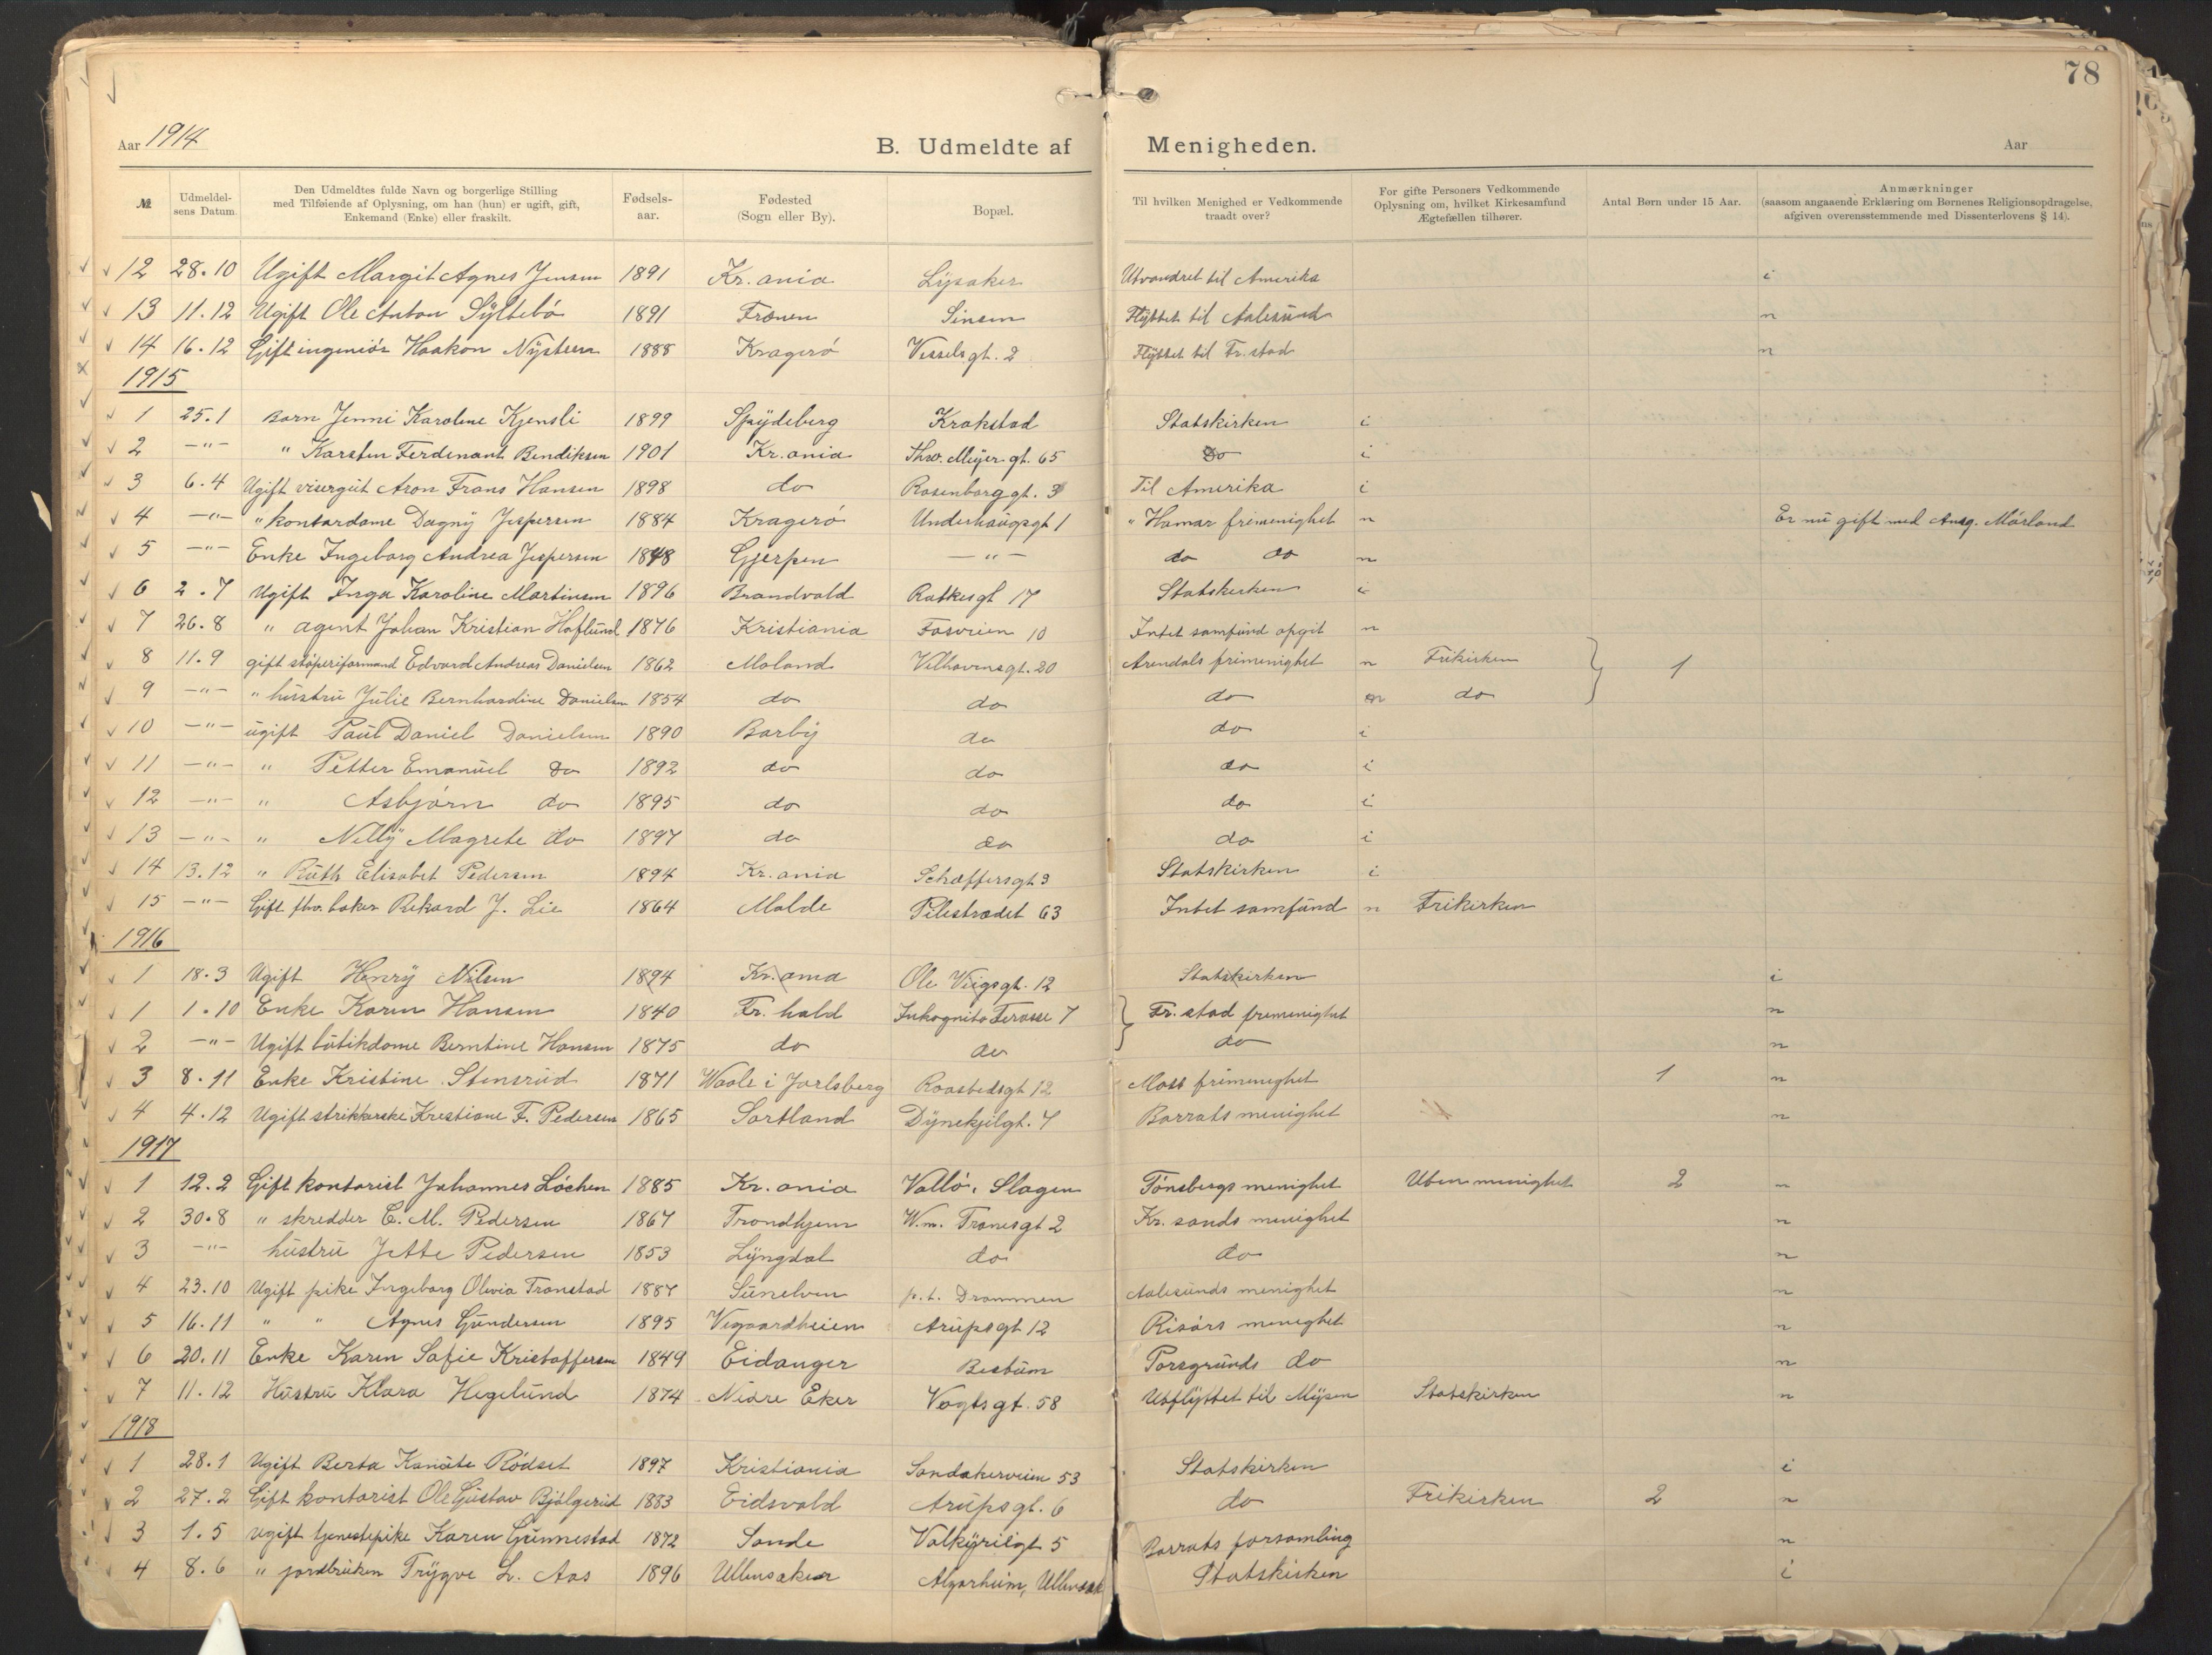 78
Aar 1914 B. Udmeldte af Menigheden. Aar
№ Udmeldelsens Datum Den Udmeldtes fulde Navn og borgerlige Stilling med Tilføiende af Oplysning, om han (hun) er ugift, gift, Enkemand (Enke) eller fraskilt. Fødselsaar. Fødested (Sogn eller By). Bopæl. Til hvilken Menighed er Vedkommende traadt over? For gifte Personers Vedkommende Oplysning om, hvilket Kirkesamfund Ægtefællen tilhører. Antal Børn under 15 Aar. Anmærkninger (saasom angaaende Erklæring om Børnenes Religionsopdragelse, afgiven overensstemmende med Dissenterlovens § 14).
12 28.10 Ugift Margit Agnes Jensen 1891 Kr.ania Lysaker Utvandret til Amerika i
13 11.12 Ugift Ole Anton Syltebö 1891 Frænen Sinsen Flyttet til Aalesund n
14 16.12 Gift ingeniör Haakon Nystrøm 1888 Kragerö Vesselsgt. 2 Flyttet til Fr.stad n
1915
1 25.1 Barn Jenni Karoline Kjensli 1899 Spydeberg Krakstad Statskirken i
2 -"- " Karsten Ferdinant Bendiksen 1901 Kr.ania Thv. Meyer gt. 65 Do i
3 6.4 Ugift visergut Aron Frans Hansen 1898 do Rosenborggt. 3 Til Amerika i
4 -"- " kontordame Dagny Jespersen 1884 Kragerö Underhaugsgt 1 " Hamar frimenighet n Er nu gift med Ansg. Mörland
5 -"- Enke Ingeborg Andrea Jespersen 1848 Gjerpen -"- do do n
6 2.7 Ugift Inga Karoline Martinsen 1896 Brandvold Ratkesgt 17 Statskirken i
7 26.8 " agent Johan Kristian Haflund 1876 Kristiania Fosveien 10 Intet samfund opgit n
8 11.9 gift stöperiformand Edvard Andreas Danielsen 1862 Moland Vilhavensgt. 20 Arendals frimenighet n Frikirken } 1
9 -"- " hustru Julie Bernhardine Danielsen 1854 do do do n do
10 -"- ugift Paul Daniel Danielsen 1890 Barby do do i
11 -"- " Petter Emanuel Do 1892 do do do i
12 -"- " Asbjörn do 1895 do do do i
13 -"- " Nelly Magrete do 1897 do do do i
14 13.12 " Ruth Elisabet Pedersen 1894 Kr.ania Schæffersgt 3 Statskirken i
15 -"- Gift fhv. baker Rikard J. Lie 1864 Molde Pilestrædet 63 Intet samfund n Frikirken
1916
1 18.3 Ugift Henry Nilsen 1894 Kr.ania Ole Viigsgt. 12 Statskirken i
1 1.10 Enke Karen Hansen 1840 Fr. hald Inkognito Terasse 7 } Fr.stad frimenighet n
2 -"- Ugift butikdame Berntine Hansen 1875 do do do n
3 8.11 Enke Kristine Stensrud 1871 Waale i Jarlsberg Roastedsgt 12 Moss frimenighet 1 n
4 4.12 Ugift strikkerske Krestiane F. Pedersen 1865 Sortland Dynekjilgt. 7 Barrats menighet n
1917
1 12.2 Gift kontorist Johannes Löchen 1885 Kr.ania Vallö, Slagen Tönsbergs menighet Uten menighet 2 n
2 30.8 " skredder C. M. Pedersen 1867 Trondhjem W.m. Tranesgt 2 Kr.sands menighet n
3 -"- hustru Jette Pedersen 1853 Lyngdal do do n
4 23.10 Ugift pike Ingeborg Olivia Tronstad 1887 Sunelven p.t. Drammen Aalesunds menighet n
5 16.11 " " Agnes Gundersen 1895 Vegaardheien Arupsgt 12 Risörs menighet n
6 20.11 Enke Karen Sofie Kristoffersen 1849 Eidanger Bestum Porsgrunds do n
7 11.12 Hustru Klara Hegelund 1874 Nedre Eker Vogtsgt. 58 Utflyttet til Mysen Statskirken n
1918
1 28.1 Ugift Berta Kanute Rödset 1897 Kristiania Sandakerveien 53 Statskirken i
2 27.2 Gift kontorist Ole Gustav Bjölgerud 1883 Eidsvold Arupsgt. 6 do Frikirken 2 n
3 1.5 ugift tjenestepike Karen Gunnestad 1872 Sande Valkyriegt 5 Barrats forsamling n
4 8.6 " jordbruker Trygve L. Aas 1896 Ullensaker Algarheim, Ullensak Statskirken i